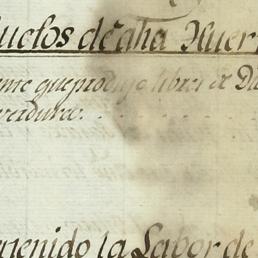 uelos de dha Huer
ente que produjo libre de D
verduras
enido la Labor de